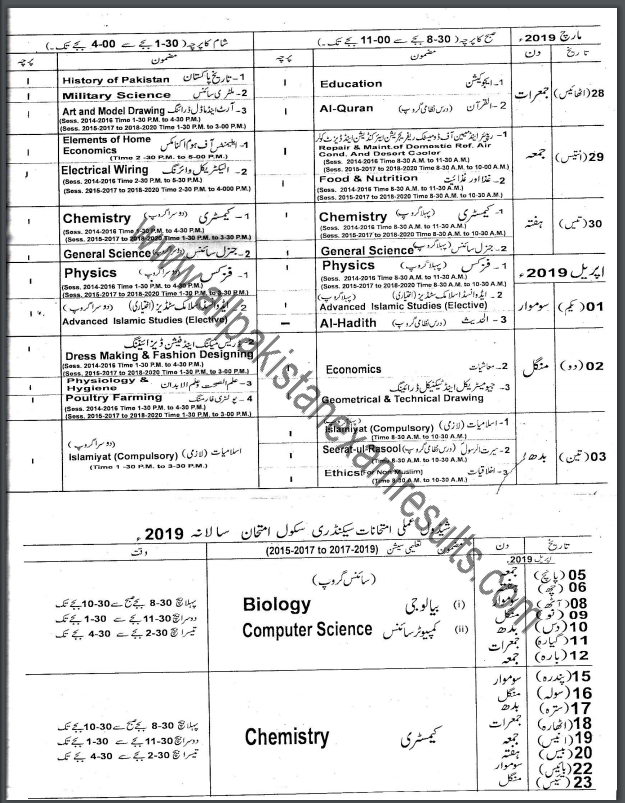 مارچ 2019ء
صبح کا پرچہ (8-30 بجے سے 11-00 بجے تک۔)
شام کا پرچہ (1-30 بجے سے 4-00 بجے تک۔)
تاریخ دن مضمون پرچہ مضمون پرچہ
28 (اٹھائیس) جمعرات
1- ایجوکیشن Education I
2- القرآن (درس نظامی گروپ) Al-Quran I
1- تاریخ پاکستان History of Pakistan I
2- ملٹری سائنس Military Science I
3- آرٹ اینڈ ماڈل ڈرائنگ Art and Model Drawing I
(Sess. 2014-2016 Time 1-30 P.M. to 4-30 P.M.)
(Sess. 2015-2017 to 2018-2020 Time 1-30 P.M. to 3-00 P.M.)
29 (انتیس) جمعہ
Repair & Maint.of Domestic Ref. Air
Cond. And Desert Cooler
(Sess. 2014-2016 Time 8-30 A.M. to 11-30 A.M.)
(Sess. 2015-2017 to 2018-2020 Time 8-30 A.M. to 10-00 A.M.)
2- غذا اور غذائیت Food & Nutrition
(Sess. 2014-2016 Time 8-30 A.M. to 11-30 A.M.)
(Sess. 2015-2017 to 2018-2020 Time 8-30 A.M. to 10-30 A.M.)
1- ایلیمنٹس آف ہوم اکنامکس Elements of Home
Economics
(Time 2 -30 P.M. to 5-00 P.M.)
2- الیکٹریکل وائرنگ Electrical Wiring
(Sess. 2014-2016 Time 2-30 P.M. to 5-30 P.M.)
(Sess. 2015-2017 to 2018-2020 Time 2-30 P.M. to 4-000 P.M.)
30 (تیس) ہفتہ
1- کیمسٹری (پہلا گروپ) Chemistry I
(Sess. 2014-2016 Time 8-30 A.M. to 11-30 A.M.)
(Sess. 2015-2017 to 2018-2020 Time 8-30 A.M. to 10-30 A.M.)
2- جنرل سائنس (پہلا گروپ) General Science I
1- کیمسٹری (دوسرا گروپ) Chemistry I
(Sess. 2014-2016 Time 1-30 P.M. to 4-30 P.M.)
(Sess. 2015-2017 to 2018-2020 Time 1-30 P.M. to 3-30 P.M.)
2- جنرل سائنس (دوسرا گروپ) General Science I
اپریل 2019ء
01 (یکم) سوموار
1- فزکس (پہلا گروپ) Physics I
(Sess. 2014-2016 Time 8-30 A.M. to 11-30 A.M.)
(Sess. 2015-2017 to 2018-2020 Time 8-30 A.M. to 10-30 A.M.)
2- ایڈوانسڈ اسلامک سٹڈیز (اختیاری) (پہلا گروپ)
Advanced Islamic Studies (Elective)
3- الحدیث (درس نظامی گروپ) Al-Hadith
1- فزکس (دوسرا گروپ) Physics I
(Sess. 2014-2016 Time 1-30 P.M. to 4-30 P.M.)
(Sess. 2015-2017 to 2018-2020 Time 1-30 P.M. to 3-30 P.M.)
2- ایڈوانسڈ اسلامک سٹڈیز (اختیاری) (دوسرا گروپ)
Advanced Islamic Studies (Elective)
02 (دو) منگل
2- معاشیات Economics I
3- جیومیٹریکل اینڈ ٹیکنیکل ڈرائینگ
Geometrical & Technical Drawing
ڈریس میکنگ اینڈ فیشن ڈیزائیننگ
Dress Making & Fashion Designing
(Sess. 2014-2016 Time 1-30 P.M. to 4-30 P.M.)
(Sess. 2015-2017 to 2018-2020 Time 1-30 P.M. to 3-00 P.M.)
Physiology &
Hygiene
4- پولٹری فارمنگ Poultry Farming
(Sess. 2014-2016 Time 1-30 P.M. to 4-30 P.M.)
(Sess. 2015-2017 to 2018-2020 Time 1-30 P.M. to 3-00 P.M.)
03 (تین) بدھ
1- اسلامیات (لازمی) Islamiyat (Compulsory)
(Time 8-30 A.M. to 10-30 A.M.)
2- سیرت الرسول (درس نظامی گروپ) Seerat-ul-Rasool
(Time 8-30 A.M. to 10-30 A.M.)
3- اخلاقیات Ethics(For Non Muslim)
(Time 8-30 A.M. to 10-30 A.M.)
اسلامیات (لازمی) (دوسرا گروپ)
Islamiyat (Compulsory)
(Time 1 -30 P.M. to 3-30 P.M.)
www.allpakistanexamresults.com
شیڈول عملی امتحانات سیکنڈری سکول امتحان سالانہ 2019ء
تاریخ دن مضمون تعلیمی سیشن (2015-2017 to 2017-2019) وقت
اپریل 2019ء
(سائنس گروپ)
(i) بیالوجی Biology
(ii) کمپیوٹر سائنس Computer Science
05 (پانچ) جمعہ
06 (چھ)
08 (آٹھ) سوموار
09 (نو) منگل
10 (دس) بدھ
11 (گیارہ) جمعرات
12 (بارہ) جمعہ
پہلا بیچ 8-30 بجے صبح سے 10-30 بجے تک
دوسرا بیچ 11-30 بجے سے 1-30 بجے تک
تیسرا بیچ 2-30 بجے سے 4-30 بجے تک
کیمسٹری Chemistry
15 (پندرہ) سوموار
16 (سولہ) منگل
17 (سترہ) بدھ
18 (اٹھارہ) جمعرات
19 (انیس) جمعہ
20 (بیس) ہفتہ
22 (بائیس) سوموار
23 (تئیس) منگل
پہلا بیچ 8-30 بجے صبح سے 10-30 بجے تک
دوسرا بیچ 11-30 بجے سے 1-30 بجے تک
تیسرا بیچ 2-30 بجے سے 4-30 بجے تک